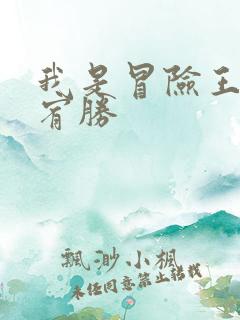 我是冒險王
宥勝
飄渺小楓
未任同意禁止轉載